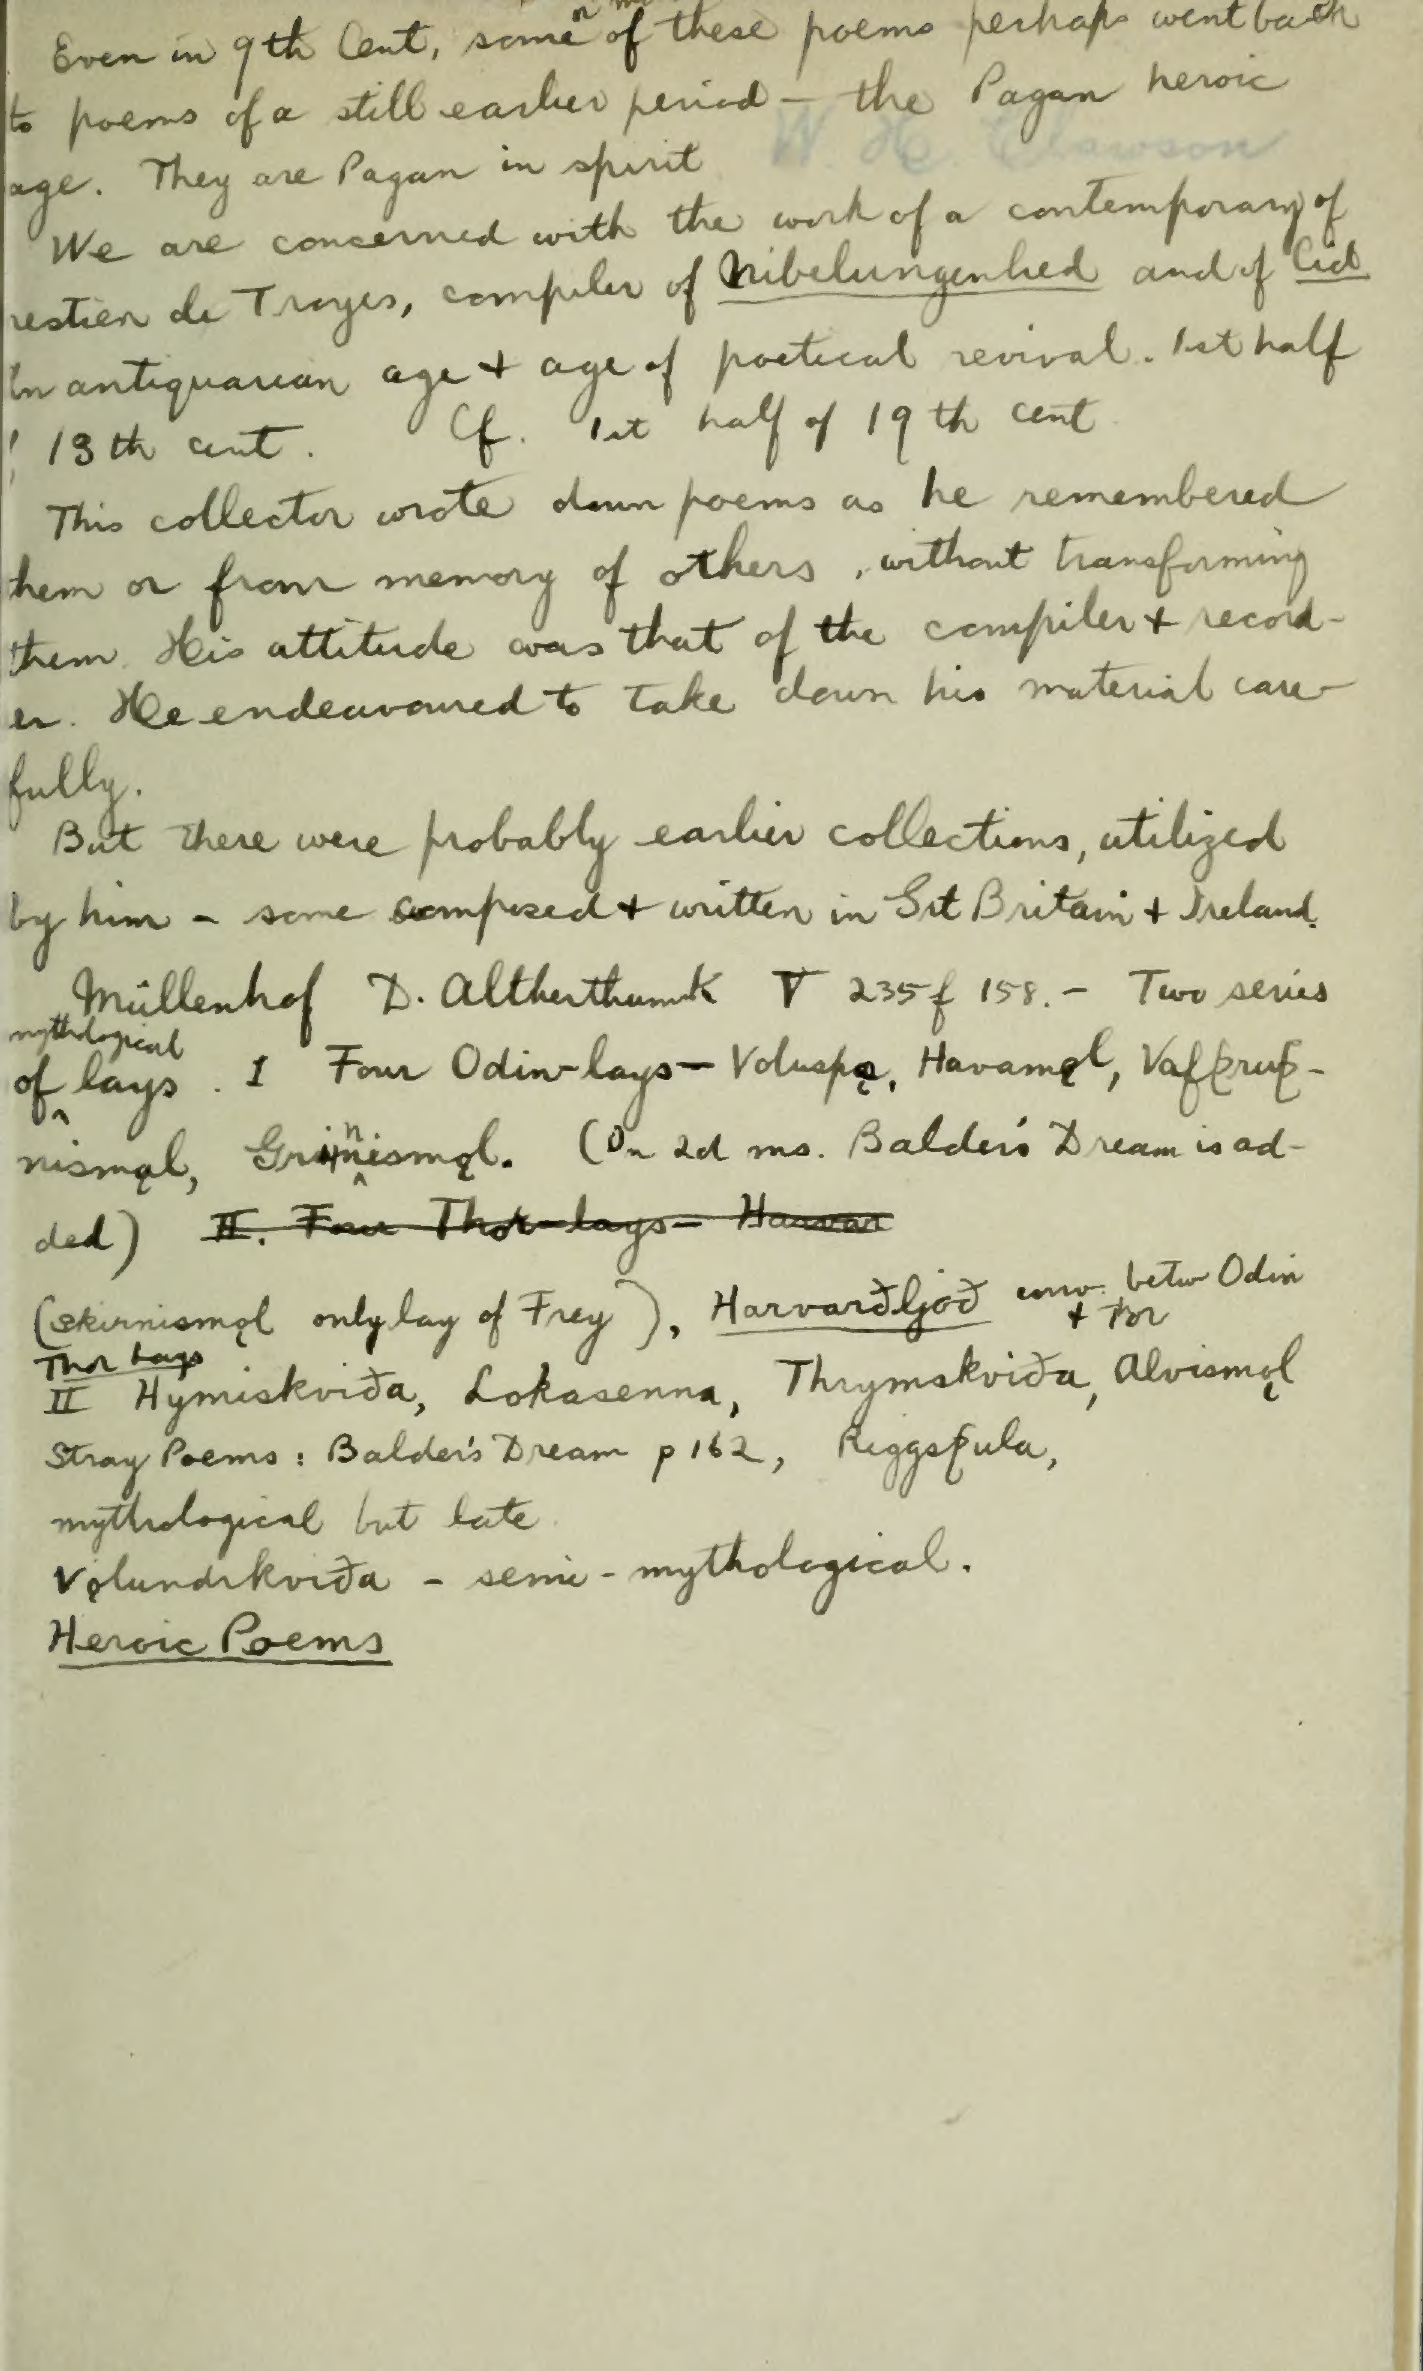 Even in 9th Cent, some of these poems perhaps went back
to poems of a still earlier period – the Pagan heroic
W. H. Clawson
age. They are Pagan in spirit
We are concerned with the work of a contemporary of
restien de Troyes, compiler of Nibelungenlied and of Cid
In antiquarian age + age of poetical revival. 1st half
13th cent. Cf. 1st half of 19th cent
This collector wrote down poems as he remembered
them or from memory of others, without transforming
them. His attitude was that of the compiler + record-
er. He endeavoured to take down his material care-
fully.
But there were probably earlier collections, utilized
by him – some composed + written in Grt Britain + Ireland.
Müllenhof D. Altherthumk V 235f 158. – Two series
mythological
of lays. I Four Odin-lays – Voluspǫ, Havamǫl, Vafþruþ-
nismǫl, Grimnismǫl. (In 2d ms. Balder's Dream is ad-
ded) II. Four Thor-lays – Harvar
(Skirnismǫl only lay of Frey), Harvarðljoð conv. betw Odin
+ Thor
Thor Lays
II Hymiskviða, Lokasenna, Thrymskviða, Alvismǫl
Stray Poems: Balder's Dream p 162, Riggsþula,
mythological but late.
Vǫlundrkviða – semi-mythological.
Heroic Poems